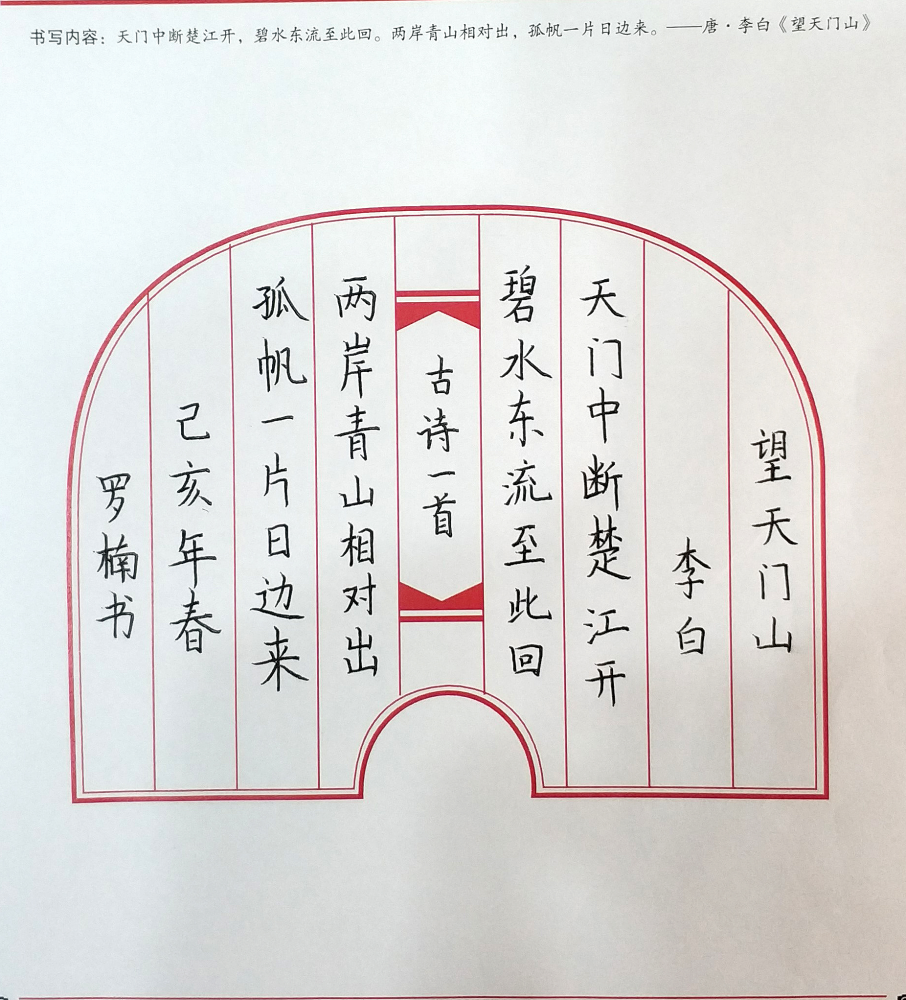 书写内容：天门中断楚江开，碧水东流至此回。两岸青山相对出，孤帆一片日边来。——唐·李白《望天门山》
望天门山
李白
天门中断楚江开
碧水东流至此回
古诗一首
两岸青山相对出
孤帆一片日边来
己亥年春
罗楠书